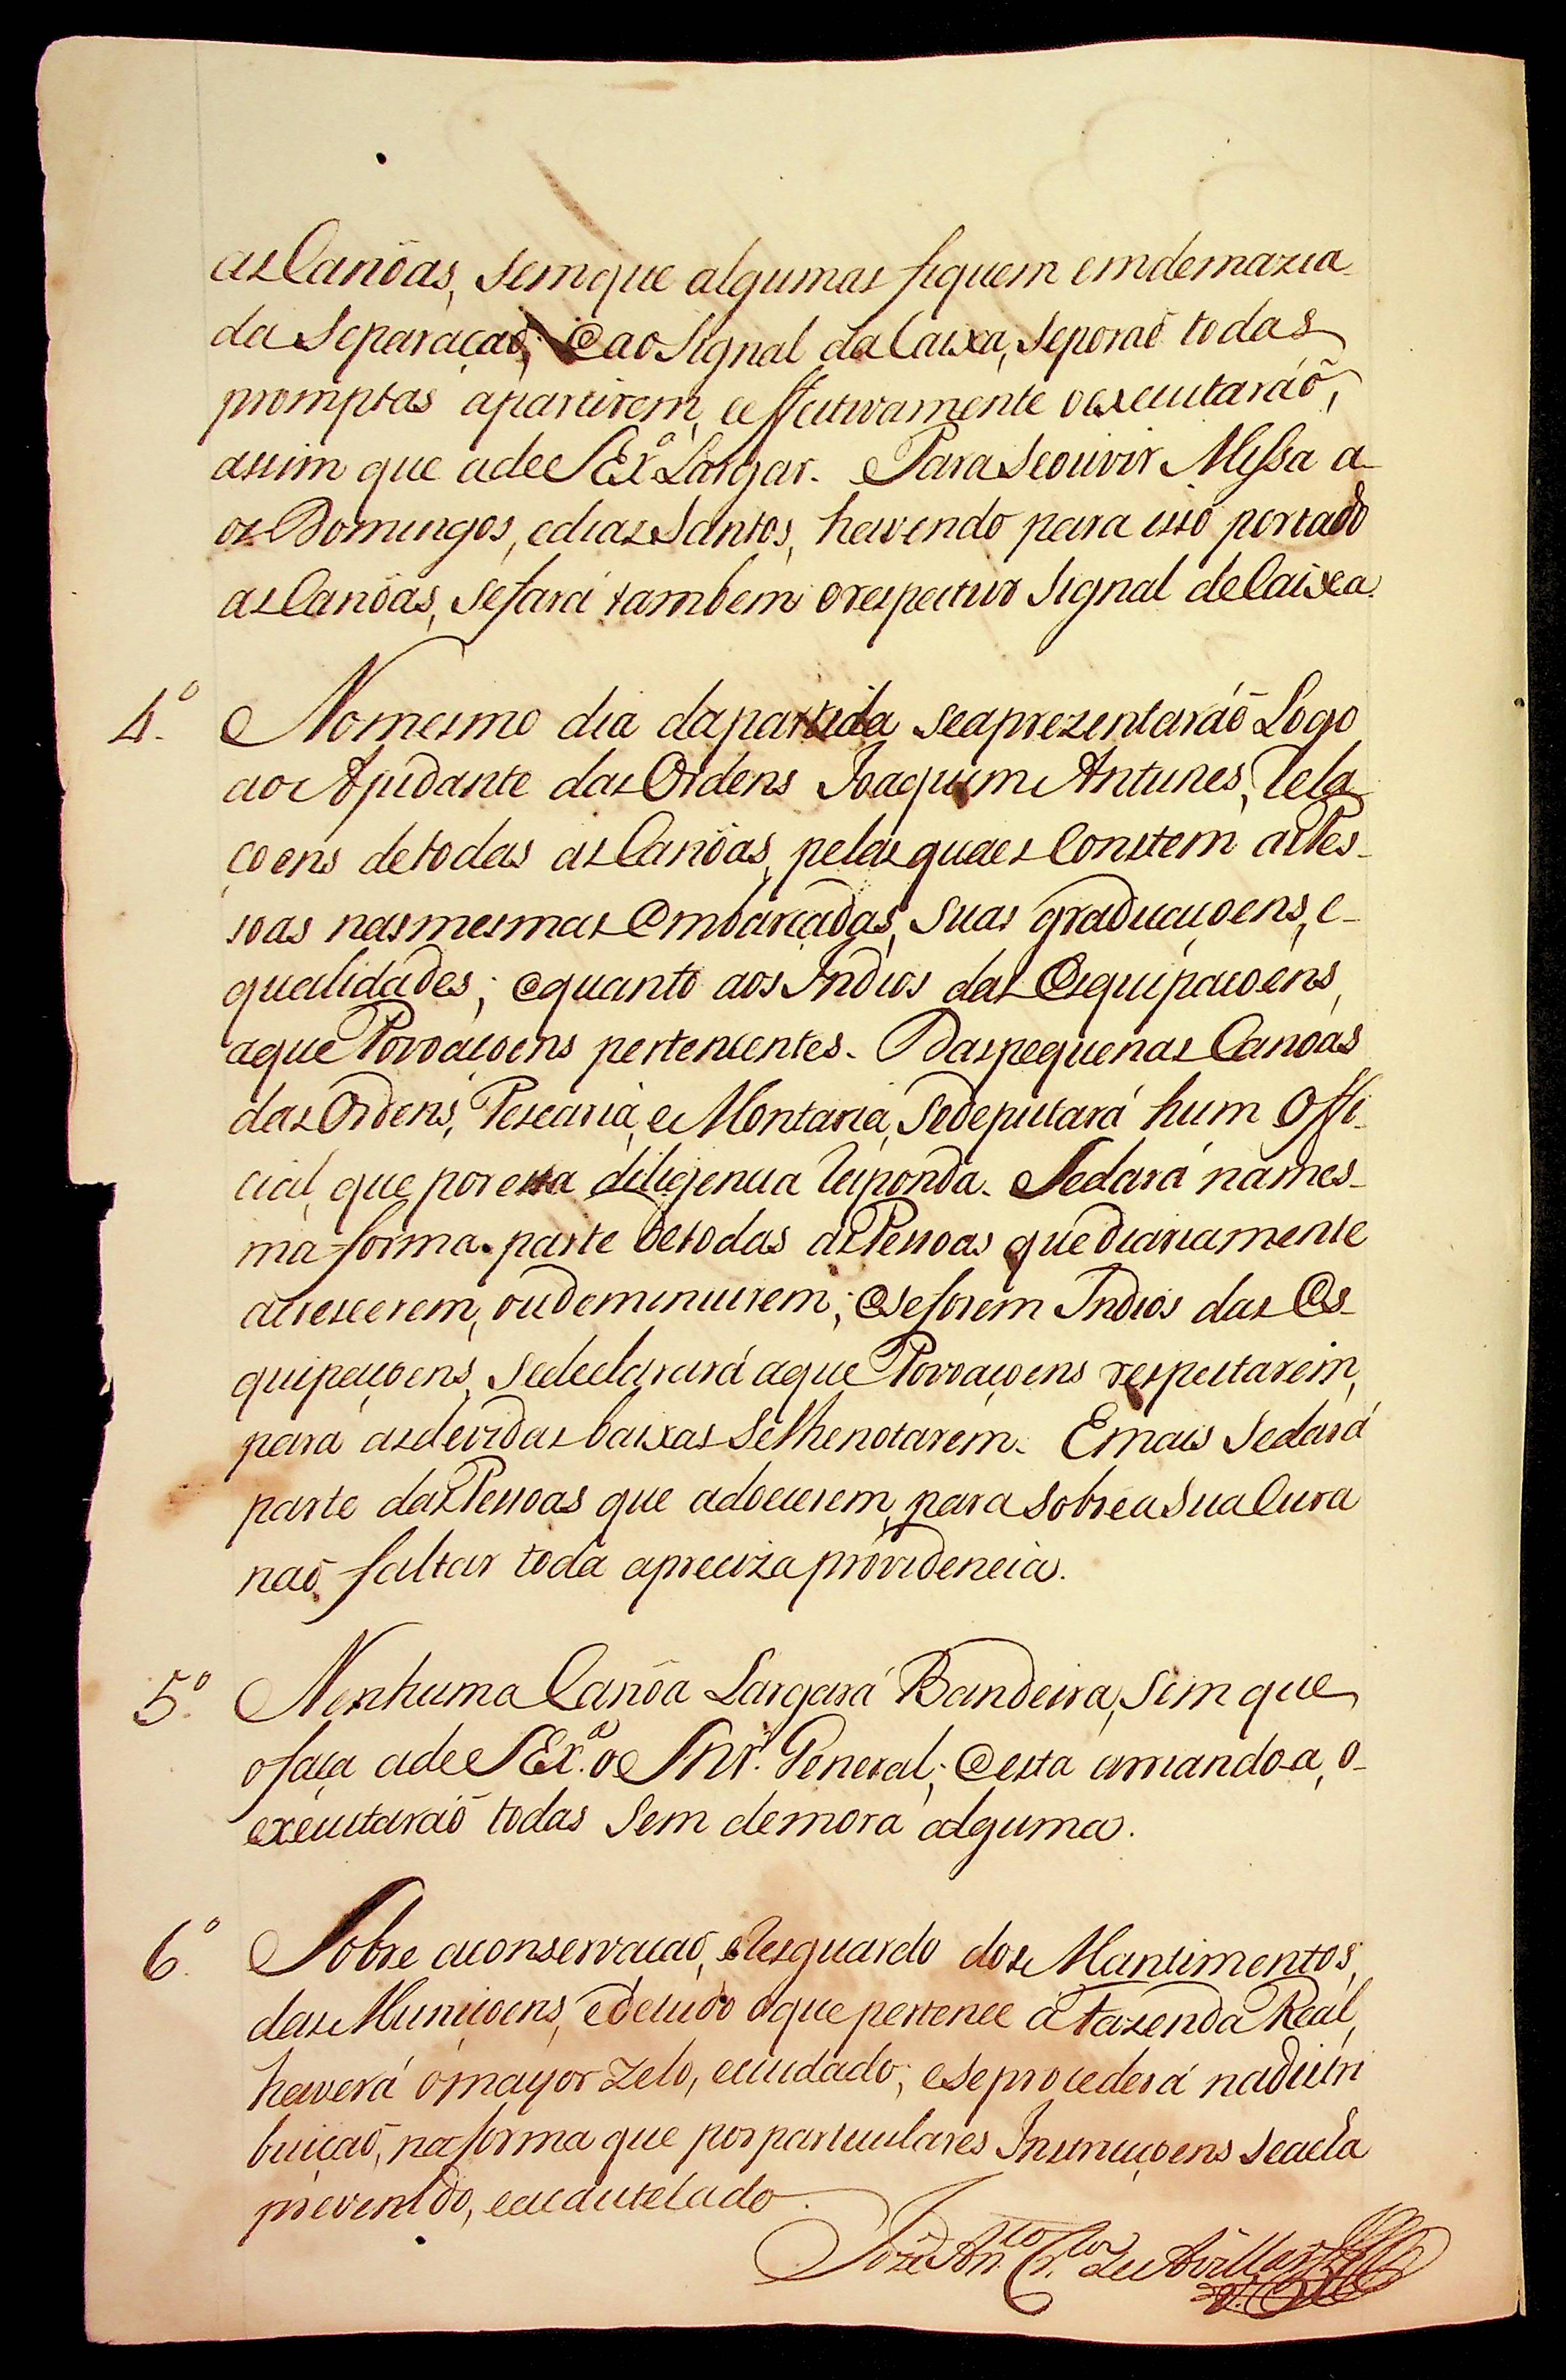 as Canoas, sem que algumas fiquem em demazia
da Separaçaõ; E ao Signal da Caixa, se poraõ todas
promptas a partirem, e effectivamente o executaráõ,
assim que a de S Exª Largar. Para se ouvir Missa a-
os Domingos, e dias Santos, havendo para isso portado
as Canoas, se fará tambem o respectivo Signal de Caixa.
4º No mesmo dia da partida se aprezentaráõ Logo
ao Ajudante das Ordens Joaquim Antunes, Rela-
çoens de todas as Canôas, pelas quaes Constem as Pes-
soas nas mesmas Embarcadas, suas graduaçoens, e
qualidades; e quanto aos Indios das Esquipaçoens,
a que Povoaçoens pertencentes. Das pequenas Canôas
das Ordens, Pescaria, e Montaria, se deputará hum Offi-
cial, que por essa diligencia responda. Se dará na mes-
ma forma parte de todas as Pessoas que diariamente
acrescerem, ou deminuirem; E se forem Indios das Es-
quipaçoens, se declarará a que Povoaçoens respectarem,
para as devidas baixas se lhe notarem. E mais se dará
parte das Pessoas que adoecerem, para sobre a sua Cura
naõ faltar toda a preciza providencia.
5º Nenhuma Canôa Largará Bandeira, sem que
o faça a de S Exª o Snr. General; E esta arriando-a, o
executaráõ todas sem demora alguma.
6º Sobre a conservaçaõ, e resguardo dos Mantimentos,
das Muniçoens, e de tudo o que pertence á Fazenda Real,
haverá o mayor zelo, e cuidado; e se procederá na distri
buiçaõ, na forma que por particulares Instrucçoens se acha
prevenido, e acautelado.
Joze Anto